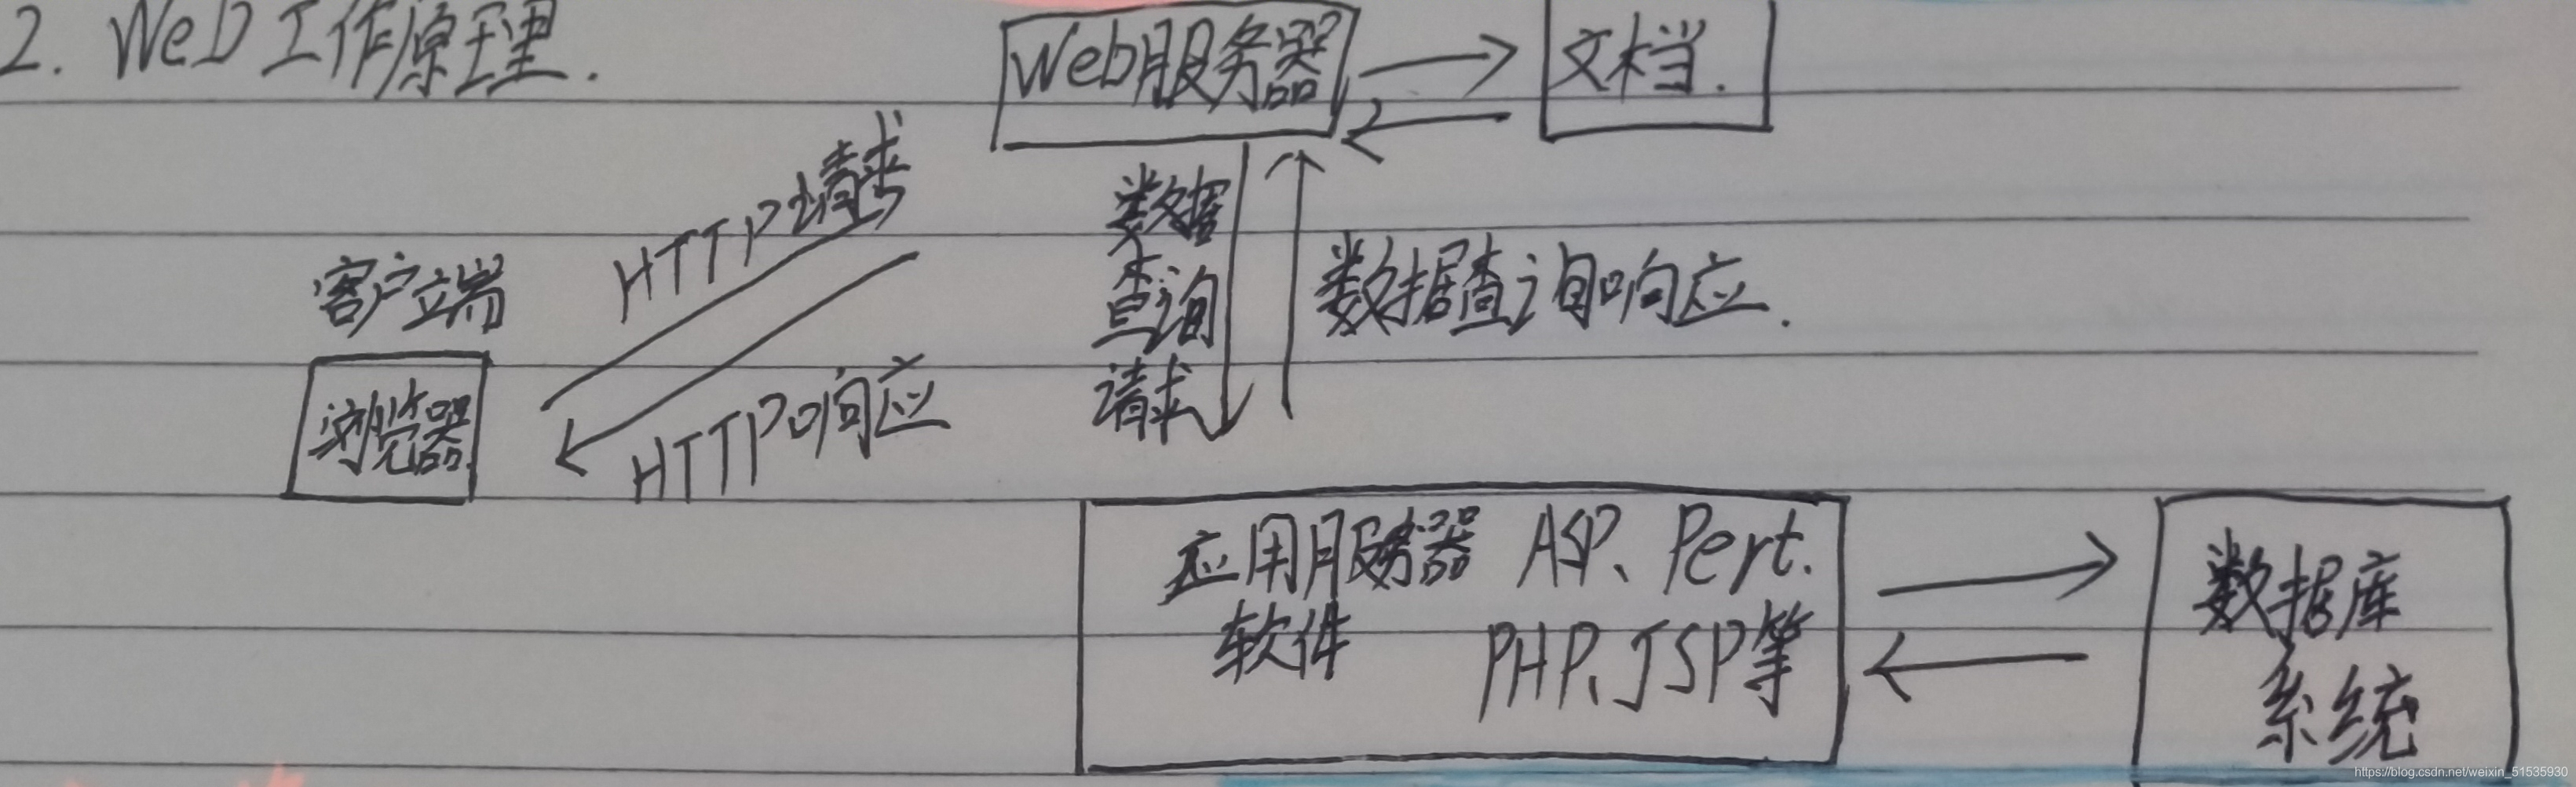 2. Web工作原理.
Web服务器
文档.
HTTP请求
数据
查询
请求
数据查询响应.
客户端
浏览器
HTTP响应
应用服务器 ASP、Perl.
软件 PHP、JSP等
数据库
系统
https://blog.csdn.net/weixin_51535930